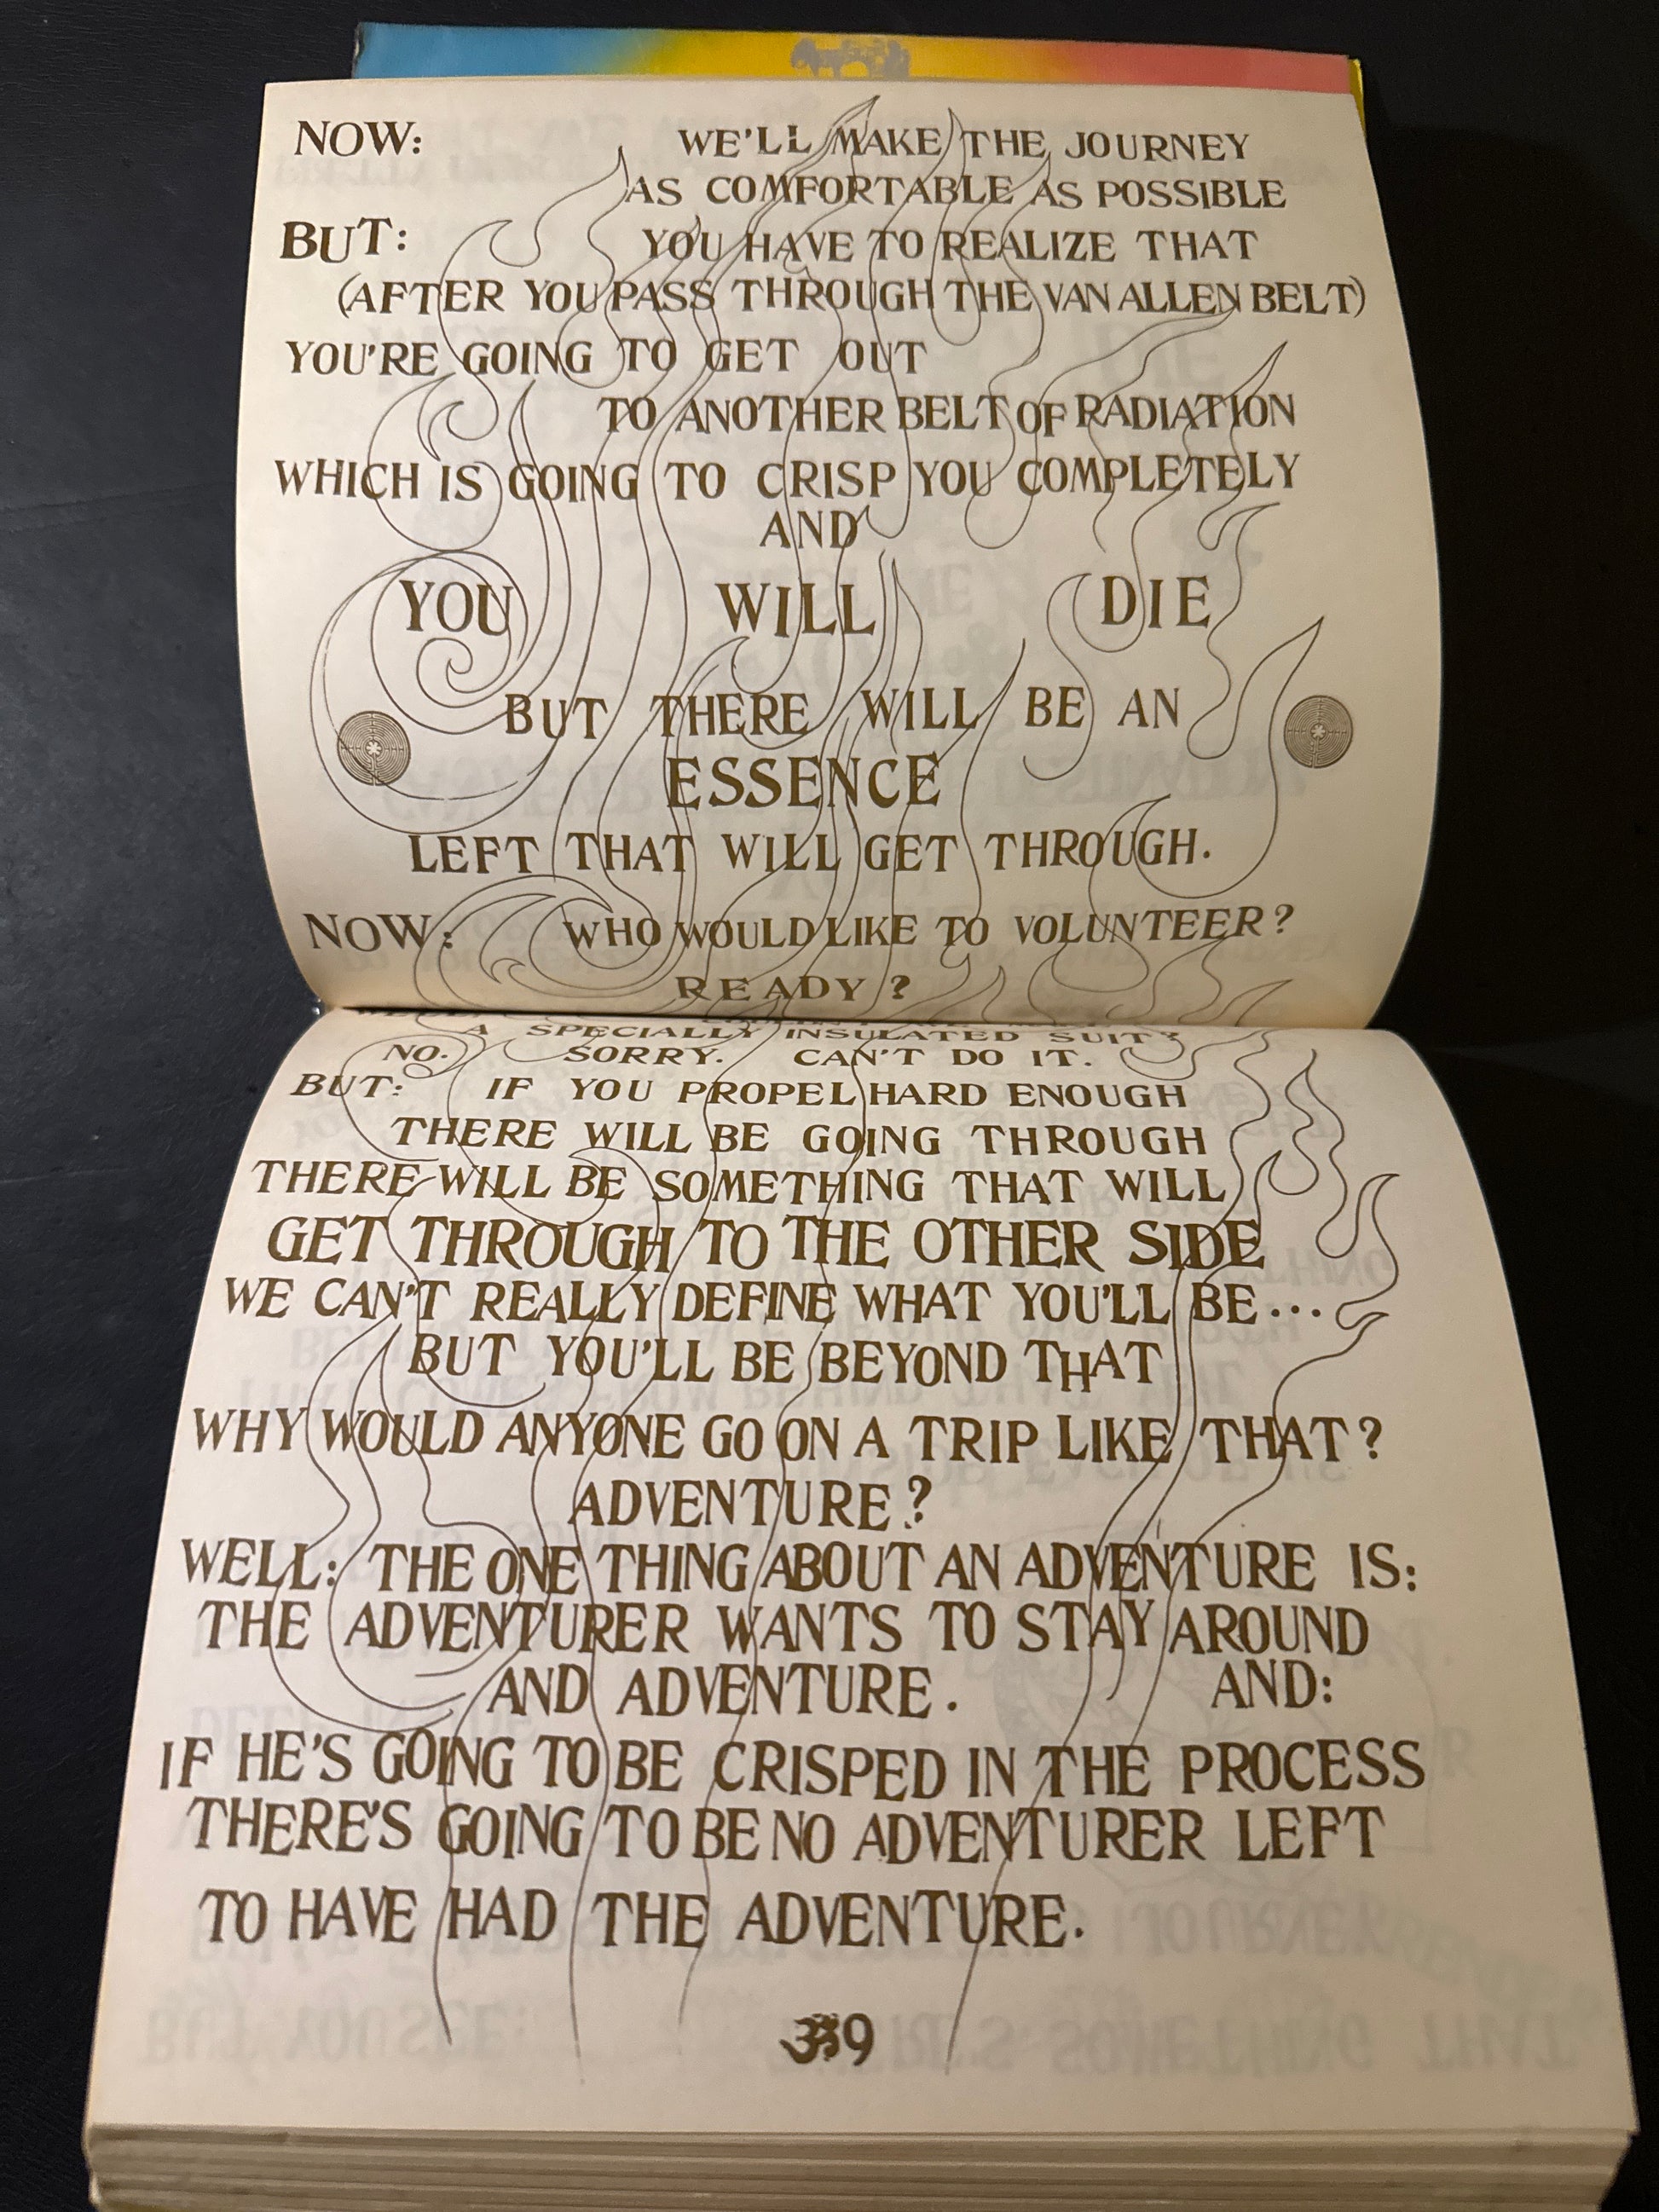 NOW: WE'LL MAKE THE JOURNEY
AS COMFORTABLE AS POSSIBLE
BUT: YOU HAVE TO REALIZE THAT
(AFTER YOU PASS THROUGH THE VAN ALLEN BELT)
YOU'RE GOING TO GET OUT
TO ANOTHER BELT OF RADIATION
WHICH IS GOING TO CRISP YOU COMPLETELY
AND
YOU WILL DIE
BUT THERE WILL BE AN
ESSENCE
LEFT THAT WILL GET THROUGH.
NOW: WHO WOULD LIKE TO VOLUNTEER?
READY?
A SPECIALLY INSULATED SUIT?
NO. SORRY. CAN'T DO IT.
BUT: IF YOU PROPEL HARD ENOUGH
THERE WILL BE GOING THROUGH
THERE WILL BE SOMETHING THAT WILL
GET THROUGH TO THE OTHER SIDE
WE CAN'T REALLY DEFINE WHAT YOU'LL BE...
BUT YOU'LL BE BEYOND THAT
WHY WOULD ANYONE GO ON A TRIP LIKE THAT?
ADVENTURE?
WELL: THE ONE THING ABOUT AN ADVENTURE IS:
THE ADVENTURER WANTS TO STAY AROUND
AND ADVENTURE. AND:
IF HE'S GOING TO BE CRISPED IN THE PROCESS
THERE'S GOING TO BE NO ADVENTURER LEFT
TO HAVE HAD THE ADVENTURE.
39